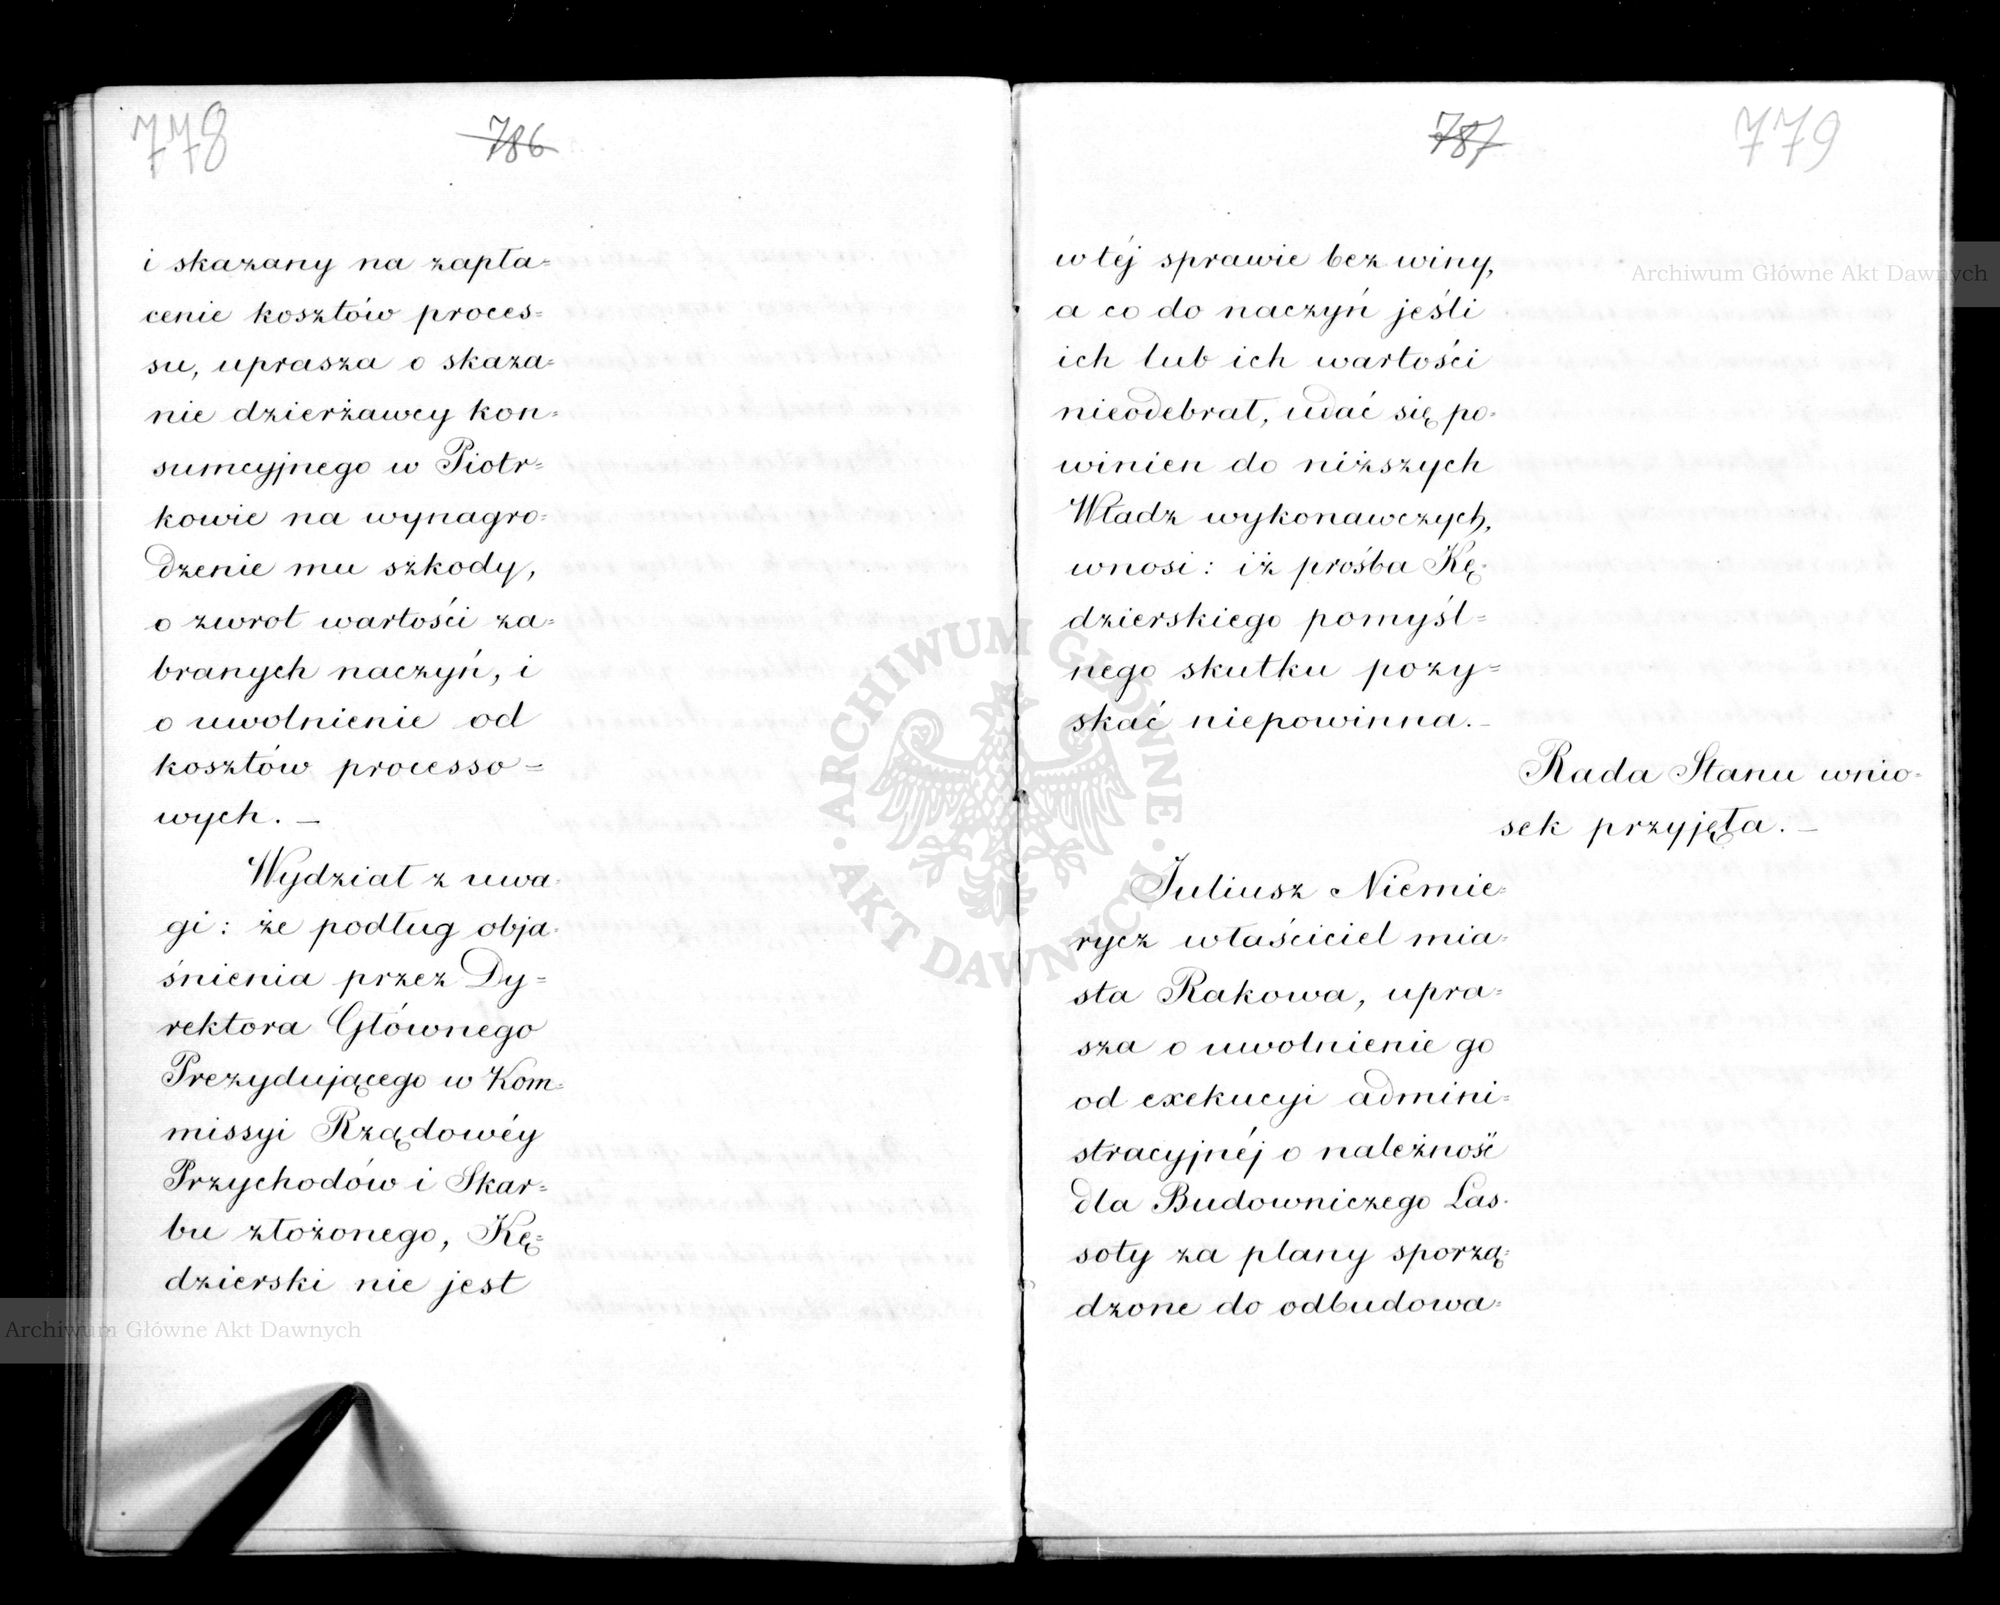 778
786
i skazany na zapła=
cenie kosztów proces=
su, uprasza o skaza=
nie dzierżawcy kon=
sumcyjnego w Piotr=
kowie na wynagro=
dzenie mu szkody,
o zwrot wartości za=
branych naczyń, i
o uwolnienie od
kosztów processo=
wych. —
Wydział z uwa=
gi: że podług obja=
śnienia przez Dy=
rektora Głównego
Prezydującego w Kom=
missyi Rządowéy
Przychodów i Skar=
bu złożonego, Kę=
dzierski nie jest
787
779
w téj sprawie bez winy,
a co do naczyń jeśli
ich lub ich wartości
nieodebrał, udać się po=
winien do niższych
Władz wykonawczych,
wnosi: iż prośba Kę=
dzierskiego pomyśl=
nego skutku pozy=
skać niepowinna. —
Rada Stanu wnio=
sek przyjęła. —
Juliusz Niemie=
rycz właściciel mia=
sta Rakowa, upra=
sza o uwolnienie go
od exekucyi admini=
stracyjnéj o należność
dla Budowniczego Las=
soty za plany sporzą=
dzone do odbudowa=
Archiwum Główne Akt Dawnych
Archiwum Główne Akt Dawnych
ARCHIWUM GŁÓWNE AKT DAWNYCH